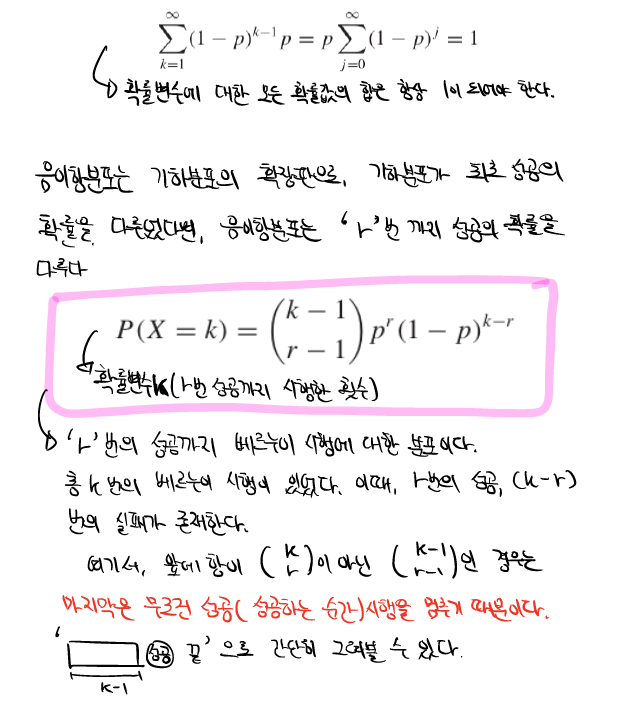 ∑_{k=1}^{∞}(1 − p)^{k−1}p = p∑_{j=0}^{∞}(1 − p)^j = 1
확률변수에 대한 모든 확률값의 합은 항상 1이 되어야 한다.
음이항분포는 기하분포의 확장판으로, 기하분포가 최초 성공의
확률을 다루었다면, 음이항분포는 'r'번 까지 성공의 확률을
다룬다
P(X = k) = (k − 1 / r − 1) p^r (1 − p)^{k−r}
확률변수 K(r번 성공까지 시행한 횟수)
'r'번의 성공까지 베르누이 시행에 대한 분포이다.
총 k번의 베르누이 시행이 있었다. 이때, r번의 성공, (k-r)
번의 실패가 존재한다.
여기서, 앞에 항이 (k / r)이 아닌 (k-1 / r-1)인 경우는
마지막은 무조건 성공(성공하는 순간)시행을 멈추기 때문이다.
' 성공 끝'으로 간단히 그려볼 수 있다.
k-1